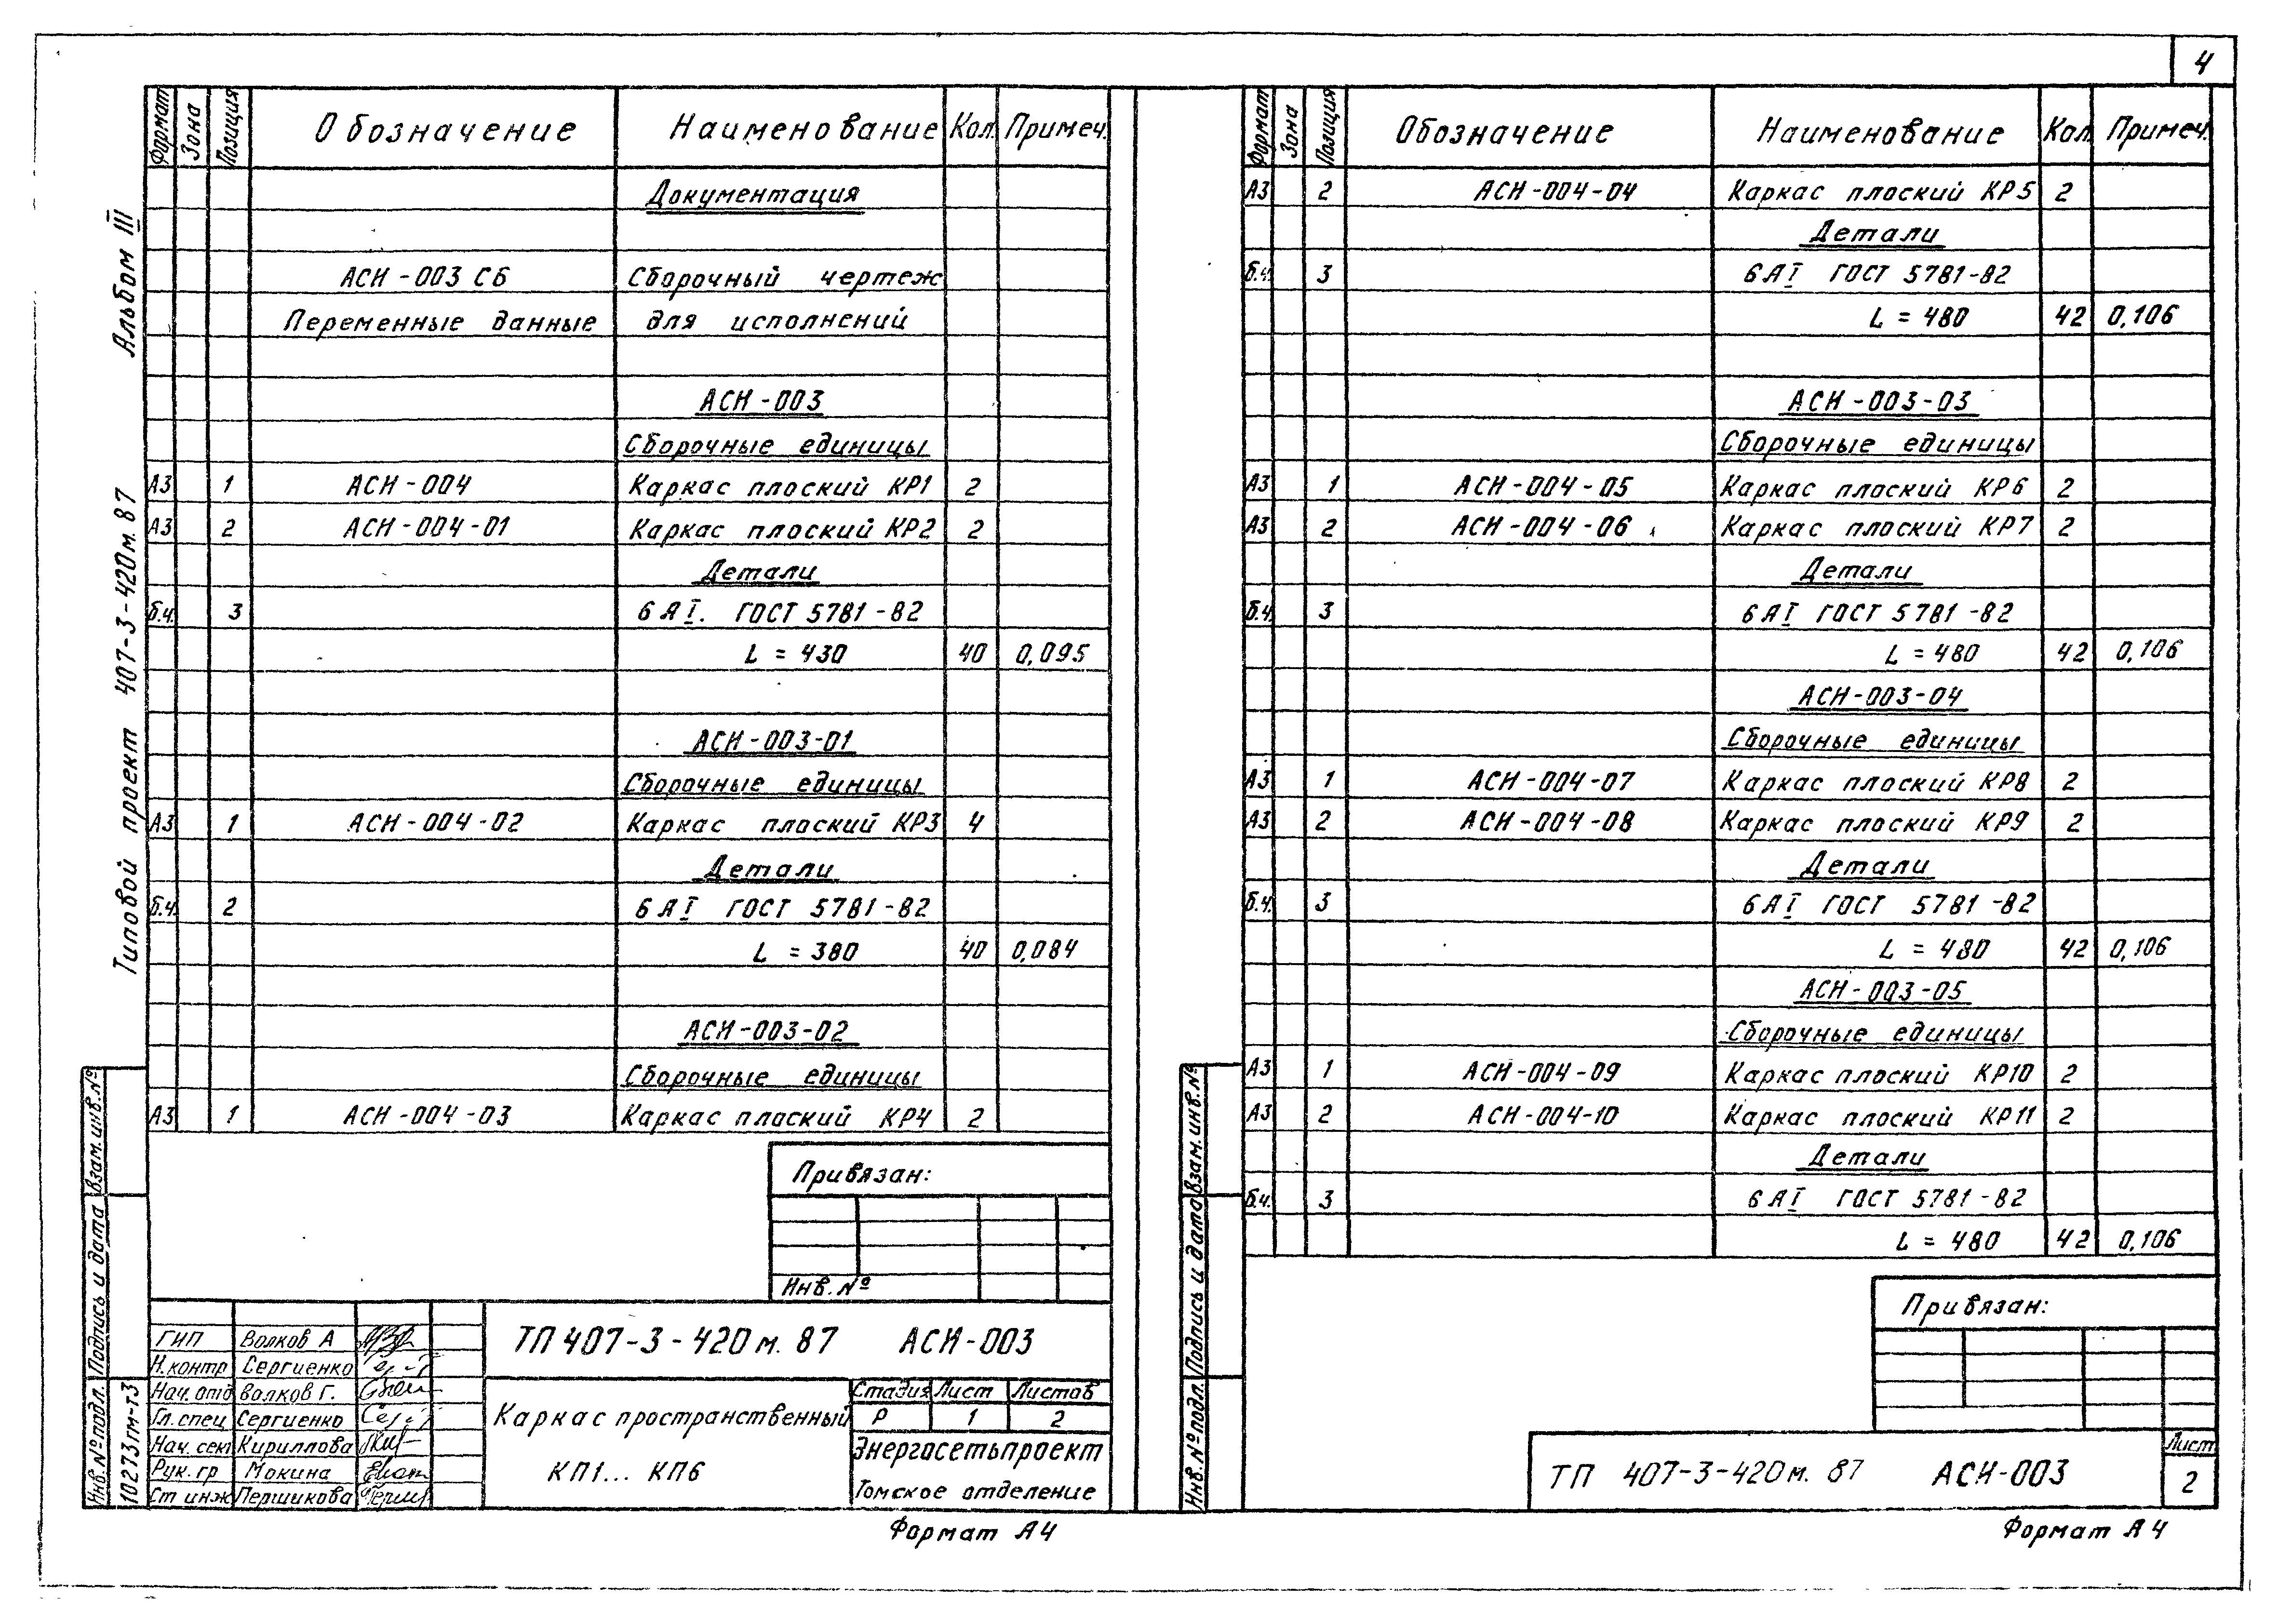 4
Альбом III
Типовой проект 407-3-420м.87
Формат Зона Позиция Обозначение Наименование Кол. Примеч.
Документация
АСИ-003 СБ Сборочный чертеж
Переменные данные для исполнений
АСИ-003
Сборочные единицы
А3 1 АСИ-004 Каркас плоский КР1 2
А3 2 АСИ-004-01 Каркас плоский КР2 2
Детали
б.ч. 3 6АI. ГОСТ 5781-82
L = 430 40 0,095
АСИ-003-01
Сборочные единицы
А3 1 АСИ-004-02 Каркас плоский КР3 4
Детали
б.ч. 2 6АI ГОСТ 5781-82
L = 380 40 0,084
АСИ-003-02
Сборочные единицы
А3 1 АСИ-004-03 Каркас плоский КР4 2
Привязан:
Инв.№
ГИП Волков А
Н.контр Сергиенко
Нач.отд Волков Г.
Гл.спец Сергиенко
Нач.сект Кириллова
Рук.гр Мокина
Ст инж Першикова
ТП 407-3-420м.87 АСИ-003
Каркас пространственный
КП1... КП6
Стадия Лист Листов
Р 1 2
Энергосетьпроект
Томское отделение
Взам.инв.№
Подпись и дата
Инв.№подл.
10273тм-т3
Формат А4
Формат Зона Позиция Обозначение Наименование Кол. Примеч.
А3 2 АСИ-004-04 Каркас плоский КР5 2
Детали
б.ч. 3 6АI ГОСТ 5781-82
L = 480 42 0,106
АСИ-003-03
Сборочные единицы
А3 1 АСИ-004-05 Каркас плоский КР6 2
А3 2 АСИ-004-06 Каркас плоский КР7 2
Детали
б.ч. 3 6АI ГОСТ 5781-82
L = 480 42 0,106
АСИ-003-04
Сборочные единицы
А3 1 АСИ-004-07 Каркас плоский КР8 2
А3 2 АСИ-004-08 Каркас плоский КР9 2
Детали
б.ч. 3 6АI ГОСТ 5781-82
L = 480 42 0,106
АСИ-003-05
Сборочные единицы
А3 1 АСИ-004-09 Каркас плоский КР10 2
А3 2 АСИ-004-10 Каркас плоский КР11 2
Детали
б.ч. 3 6АI ГОСТ 5781-82
L = 480 42 0,106
Привязан:
Взам.инв.№
Подпись и дата
Инв.№подл.
ТП 407-3-420м.87 АСИ-003
Лист
2
Формат А4